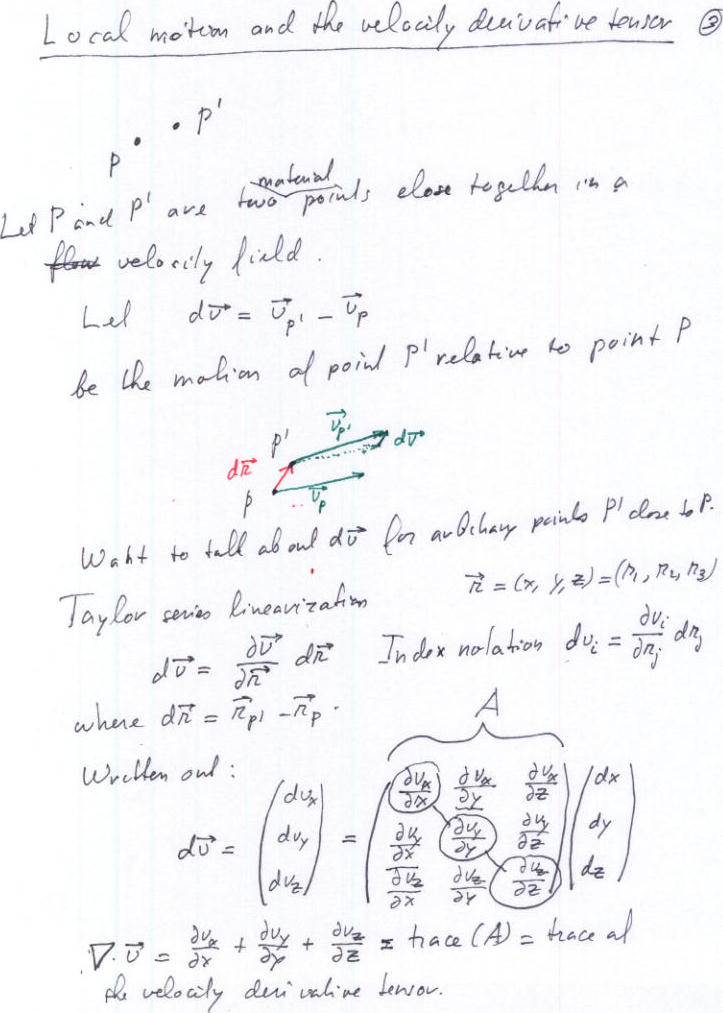 Local motion and the velocity derivative tensor ③
P P'
material
Let P and P' are two points close together in a
flow velocity field.
Let d\vec{v} = \vec{v}_{P'} - \vec{v}_P
be the motion of point P' relative to point P
P' \vec{v}_{P'} d\vec{v}
d\vec{r}
P \vec{v}_P
Want to talk about d\vec{v} for arbitrary points P' close to P.
\vec{r} = (x, y, z) = (r_1, r_2, r_3)
Taylor series linearization
d\vec{v} = \frac{∂\vec{v}}{∂\vec{r}} d\vec{r} Index notation dv_i = \frac{∂v_i}{∂r_j} dr_j
where d\vec{r} = \vec{r}_{P'} - \vec{r}_P.
A
Written out:
d\vec{v} = \begin{pmatrix} dv_x \\ dv_y \\ dv_z \end{pmatrix} = \begin{pmatrix} \frac{∂v_x}{∂x} & \frac{∂v_x}{∂y} & \frac{∂v_x}{∂z} \\ \frac{∂v_y}{∂x} & \frac{∂v_y}{∂y} & \frac{∂v_y}{∂z} \\ \frac{∂v_z}{∂x} & \frac{∂v_z}{∂y} & \frac{∂v_z}{∂z} \end{pmatrix} \begin{pmatrix} dx \\ dy \\ dz \end{pmatrix}
∇·\vec{v} = \frac{∂v_x}{∂x} + \frac{∂v_y}{∂y} + \frac{∂v_z}{∂z} = trace (A) = trace of
the velocity derivative tensor.